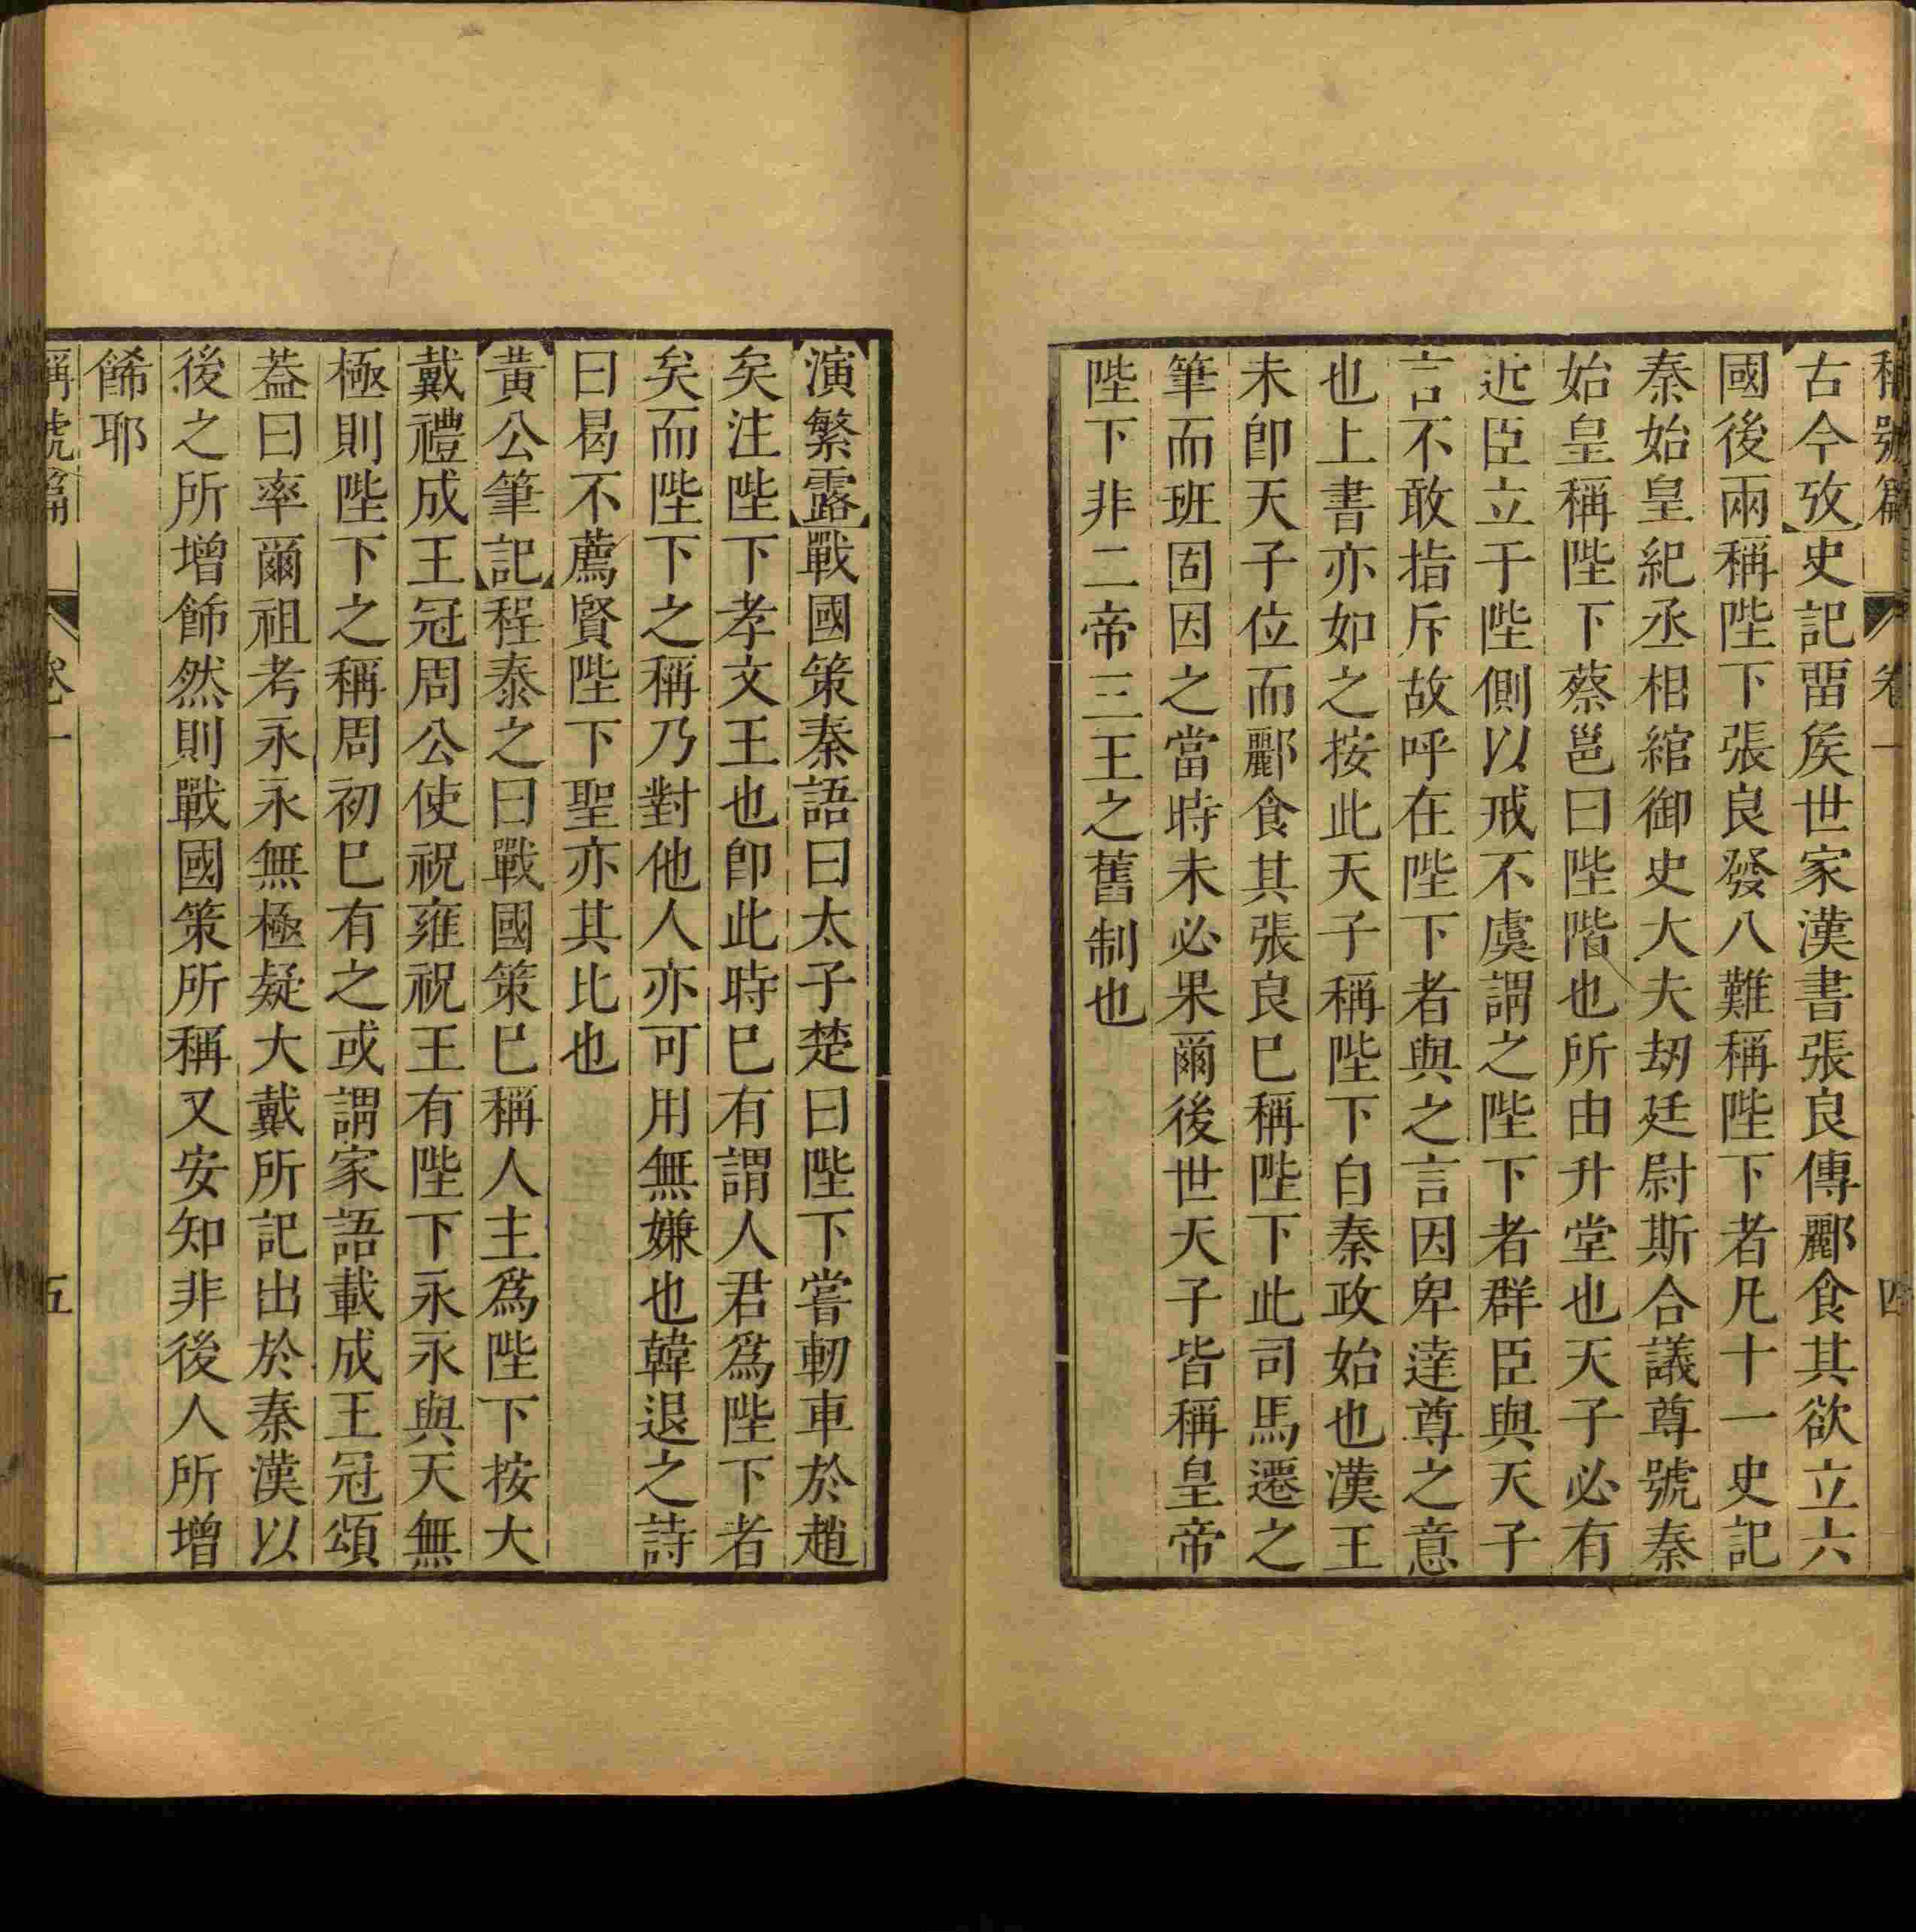 稱號篇 卷一 四
古今攷史記畱矦世家漢書張良傳酈食其欲立六
國後兩稱陛下張良發八難稱陛下者凡十一史記
秦始皇紀丞相綰御史大夫劫廷尉斯合議尊號秦
始皇稱陛下蔡邕曰陛階也所由升堂也天子必有
近臣立于陛側以戒不虞謂之陛下者群臣與天子
言不敢指斥故呼在陛下者與之言因卑達尊之意
也上書亦如之按此天子稱陛下自秦政始也漢王
未卽天子位而酈食其張良巳稱陛下此司馬遷之
筆而班固因之當時未必果爾後世天子皆稱皇帝
陛下非二帝三王之舊制也
演繁露戰國策秦語曰太子楚曰陛下嘗軔車於趙
矣注陛下孝文王也卽此時巳有謂人君爲陛下者
矣而陛下之稱乃對他人亦可用無嫌也韓退之詩
曰曷不薦賢陛下聖亦其比也
黄公筆記程泰之曰戰國策巳稱人主爲陛下按大
戴禮成王冠周公使祝雍祝王有陛下永永與天無
極則陛下之稱周初巳有之或謂家語載成王冠頌
葢曰率爾祖考永永無極疑大戴所記出於秦漢以
後之所增飾然則戰國策所稱又安知非後人所增
餙耶
稱號篇 卷一 五